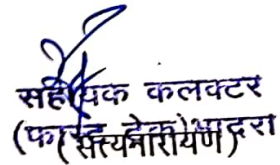 सहायक कलक्टर
(फास्ट ट्रेक) भादरा
(सत्यनारायण)